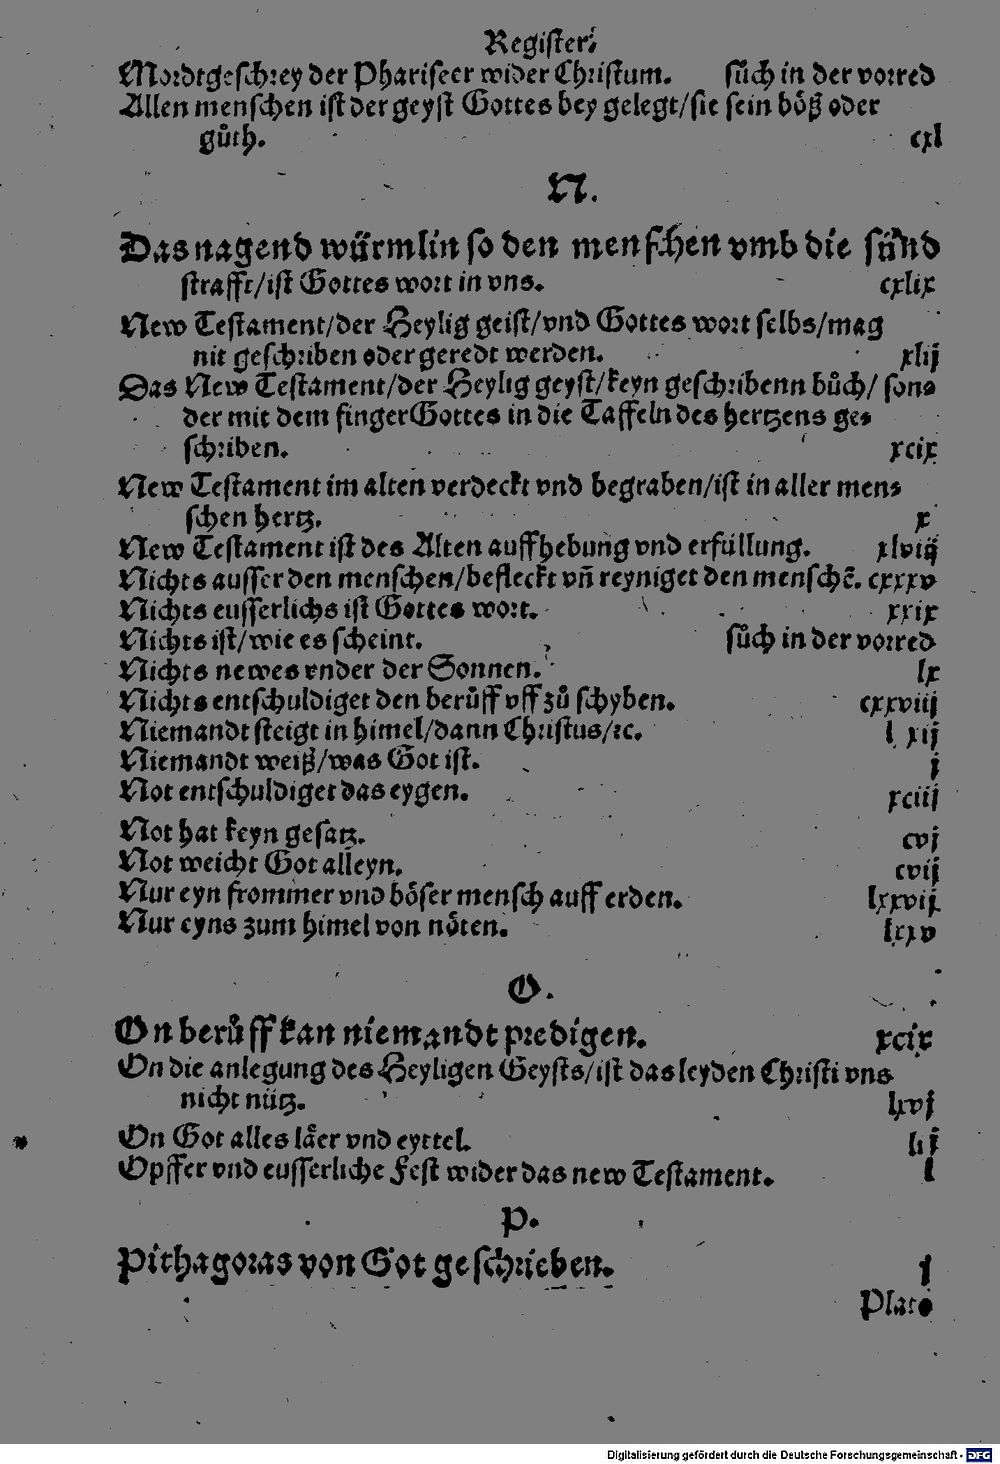 Register.
Mordtgeschrey der Phariseer wider Christum. sůch in der vorred
Allen menschen ist der geyst Gottes bey gelegt/sie sein böß oder
gůth. cxl
N.
Das nagend würmlin so den menschen vmb die sünd
strafft/ist Gottes wort in vns. cxlix
New Testament/der Heylig geist/vnd Gottes wort selbs/mag
nit geschriben oder geredt werden. xlij
Das New Testament/der Heylig geyst/keyn geschribenn bůch/ son⸗
der mit dem finger Gottes in die Taffeln des hertzens ge⸗
schriben. xcix
New Testament im alten verdeckt vnd begraben/ist in aller men⸗
schen hertz. x
New Testament ist des Alten auffhebung vnd erfüllung. xlviij
Nichts ausser den menschen/befleckt vñ reyniget den menschẽ. cxxxv
Nichts eusserlichs ist Gottes wort. xxix
Nichts ist/wie es scheint. sůch in der vorred
Nichts newes vnder der Sonnen. lx
Nichts entschuldiget den berůff vff zů schyben. cxxviij
Niemandt steigt in himel/dann Christus/ꝛc. lxij
Niemandt weiß/was Got ist. j
Not entschuldiget das eygen. xciij
Not hat keyn gesatz. cvj
Not weicht Got alleyn. cvij
Nur eyn frommer vnd böser mensch auff erden. lxxvij
Nur eyns zum himel von nöten. lxxv
O.
On berůff kan niemandt predigen. xcix
On die anlegung des Heyligen Geysts/ist das leyden Christi vns
nicht nütz. lxvj
On Got alles läer vnd eyttel. lij
Opffer vnd eusserliche Fest wider das new Testament. l
P.
Pithagoras von Got geschrieben. j
Plato
Digitalisierung gefördert durch die Deutsche Forschungsgemeinschaft - DFG